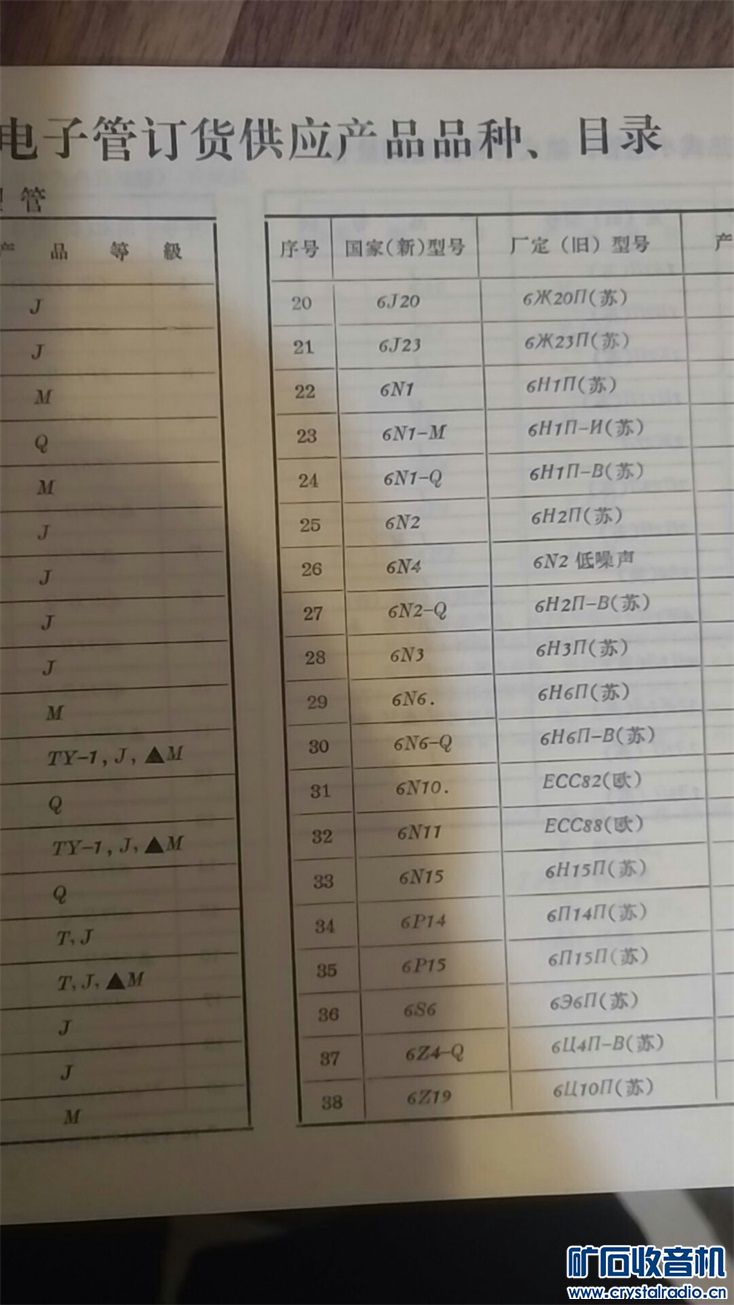 电子管订货供应产品品种、目录
管
产 品 等 級
J
J
M
Q
M
J
J
J
J
M
TY-1, J, ▲M
Q
TY-1, J, ▲M
Q
T, J
T, J, ▲M
J
J
M
序号 国家(新)型号 厂定(旧)型号 产
20 6J20 6Ж20П(苏)
21 6J23 6Ж23П(苏)
22 6N1 6Н1П(苏)
23 6N1-M 6Н1П-И(苏)
24 6N1-Q 6Н1П-В(苏)
25 6N2 6Н2П(苏)
26 6N4 6N2低噪声
27 6N2-Q 6Н2П-В(苏)
28 6N3 6Н3П(苏)
29 6N6. 6Н6П(苏)
30 6N6-Q 6Н6П-В(苏)
31 6N10. ECC82(欧)
32 6N11 ECC88(欧)
33 6N15 6Н15П(苏)
34 6P14 6П14П(苏)
35 6P15 6П15П(苏)
36 6S6 6Э6П(苏)
37 6Z4-Q 6Ц4П-В(苏)
38 6Z19 6Ц10П(苏)
矿石收音机
www.crystalradio.cn